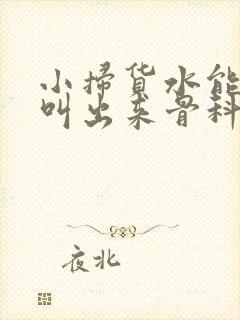 小掃货水能
叫出来骨科
夜北